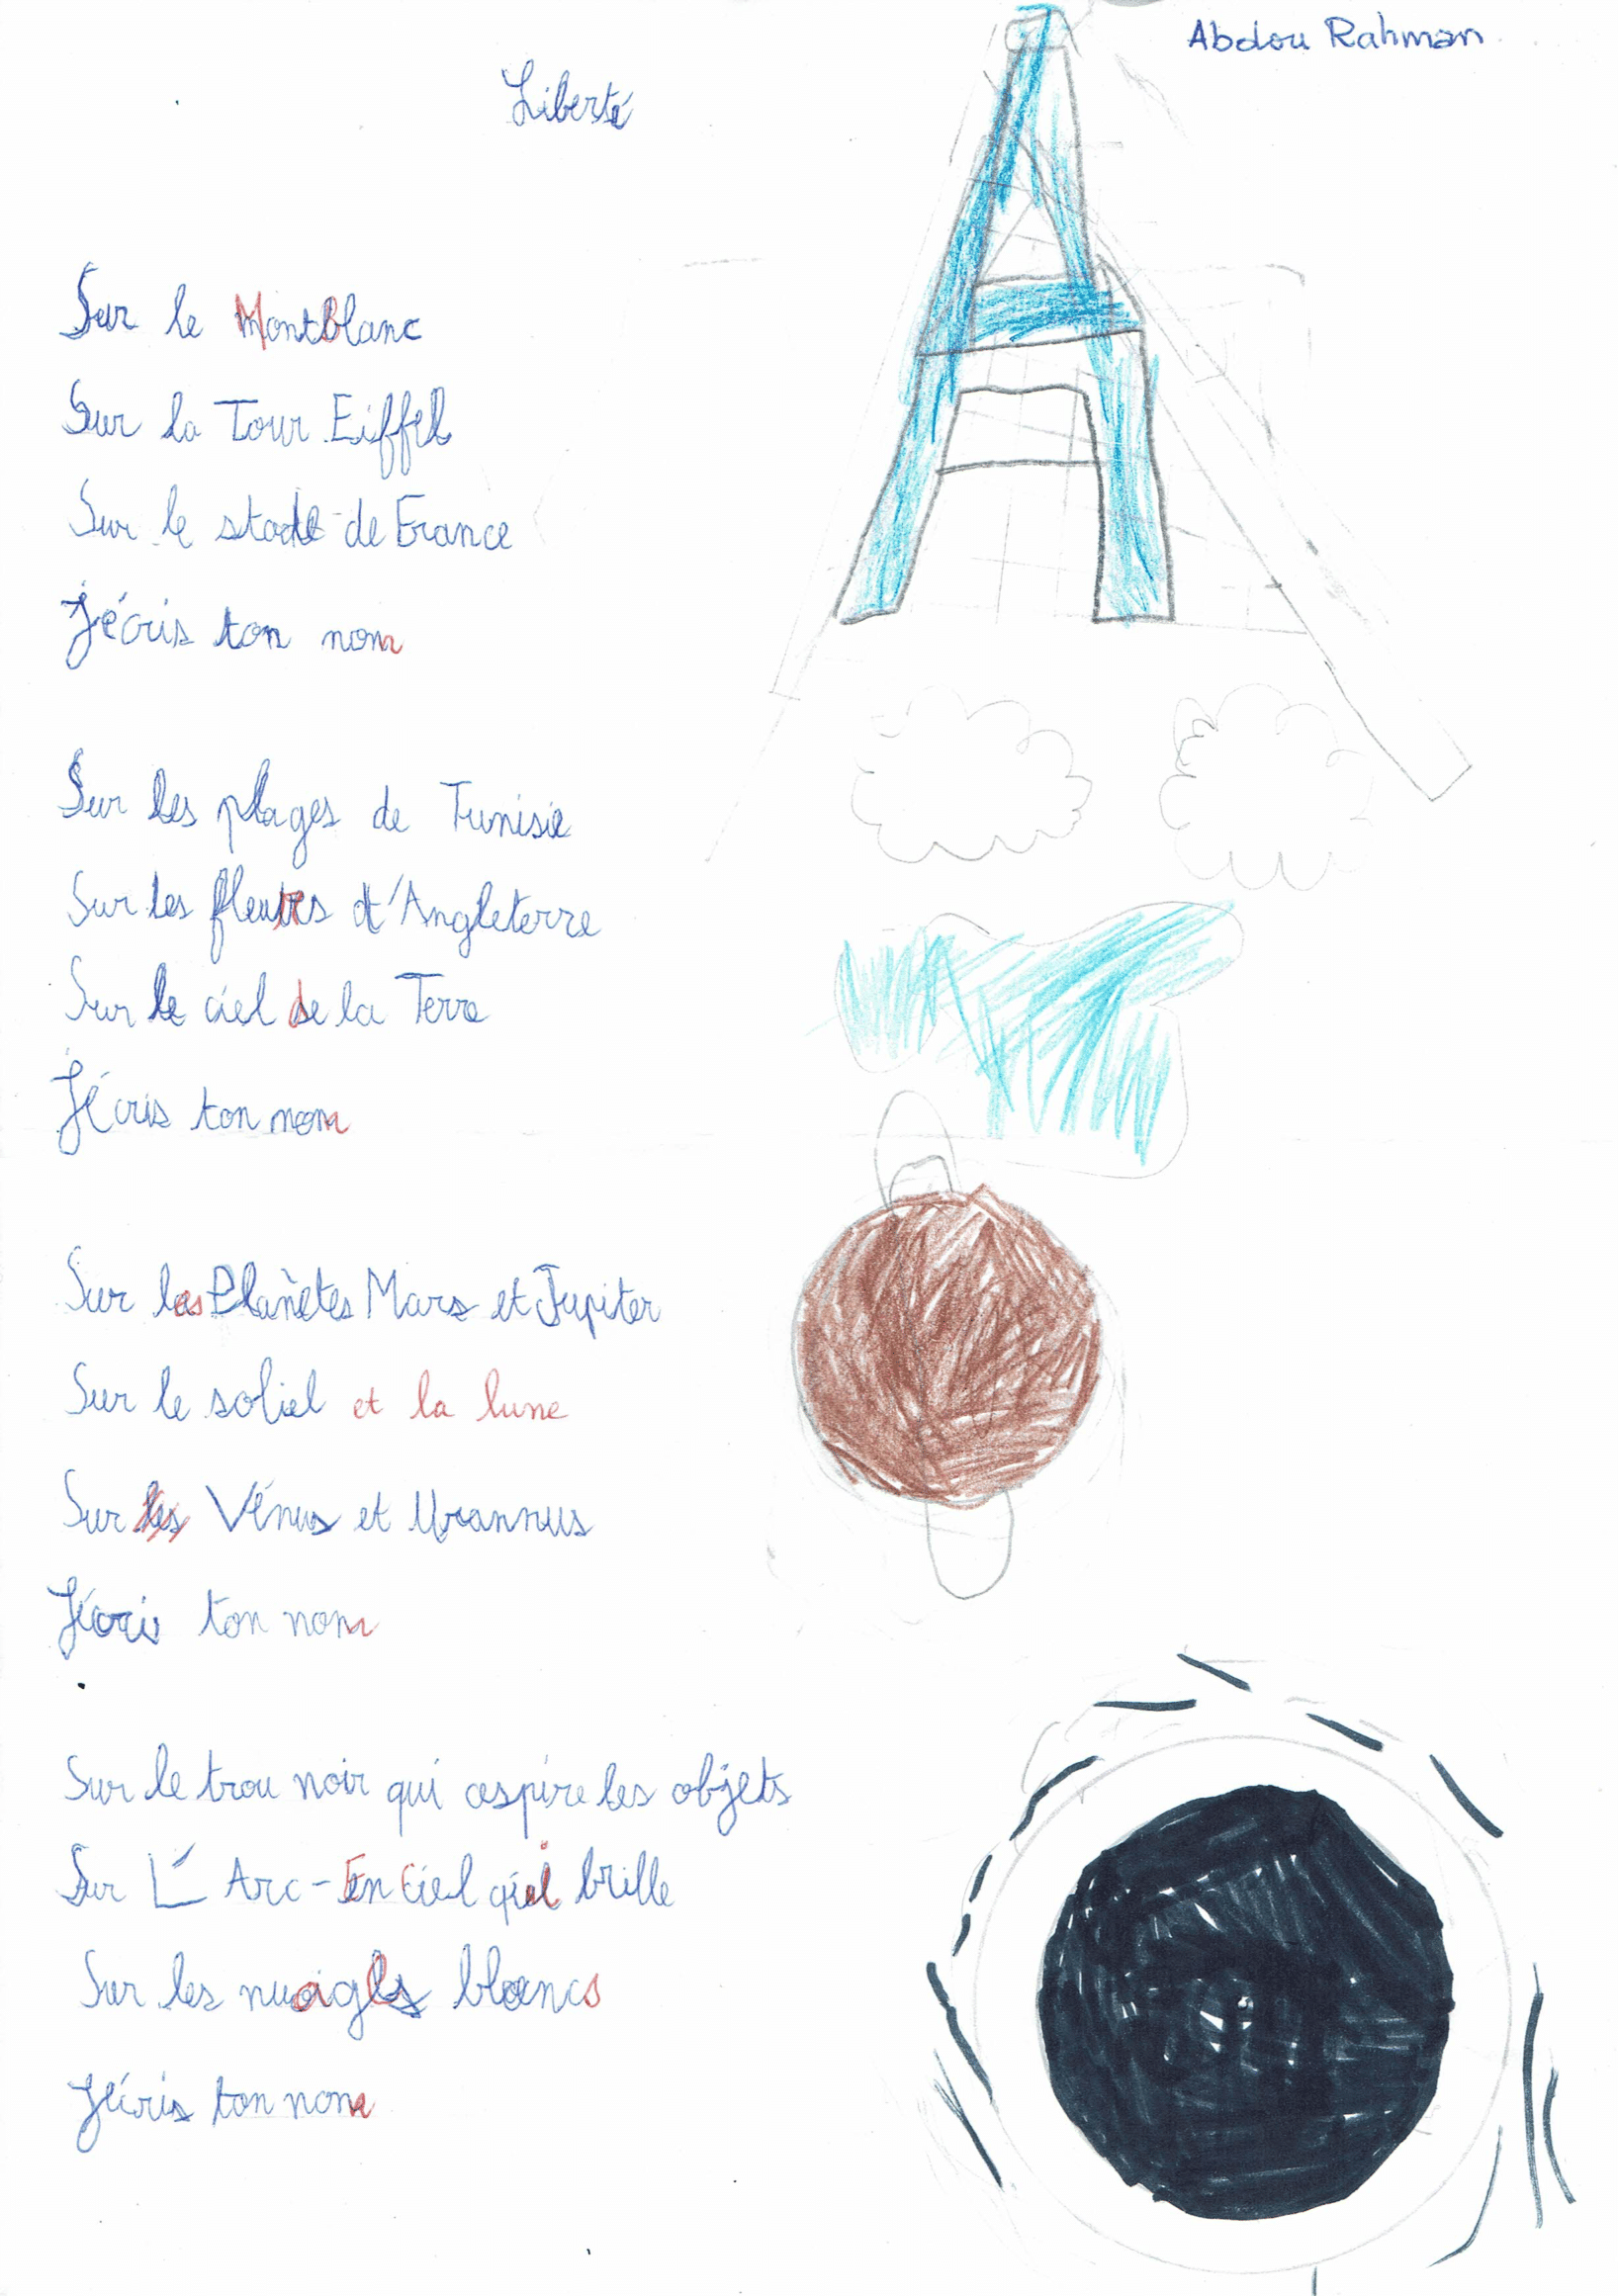 Abdou Rahman
Liberté
Sur le MontBlanc
Sur la Tour Eiffel
Sur le stade de France
J'écris ton nom
Sur les plages de Tunisie
Sur les fleuves d'Angleterre
Sur le ciel de la Terre
J'écris ton nom
Sur les Planètes Mars et Jupiter
Sur le soliel et la lune
Sur Vénus et Urannus
J'écris ton nom
Sur le trou noir qui aspire les objets
Sur L' Arc-En Ciel qui brille
Sur les blancs
J'écris ton nom